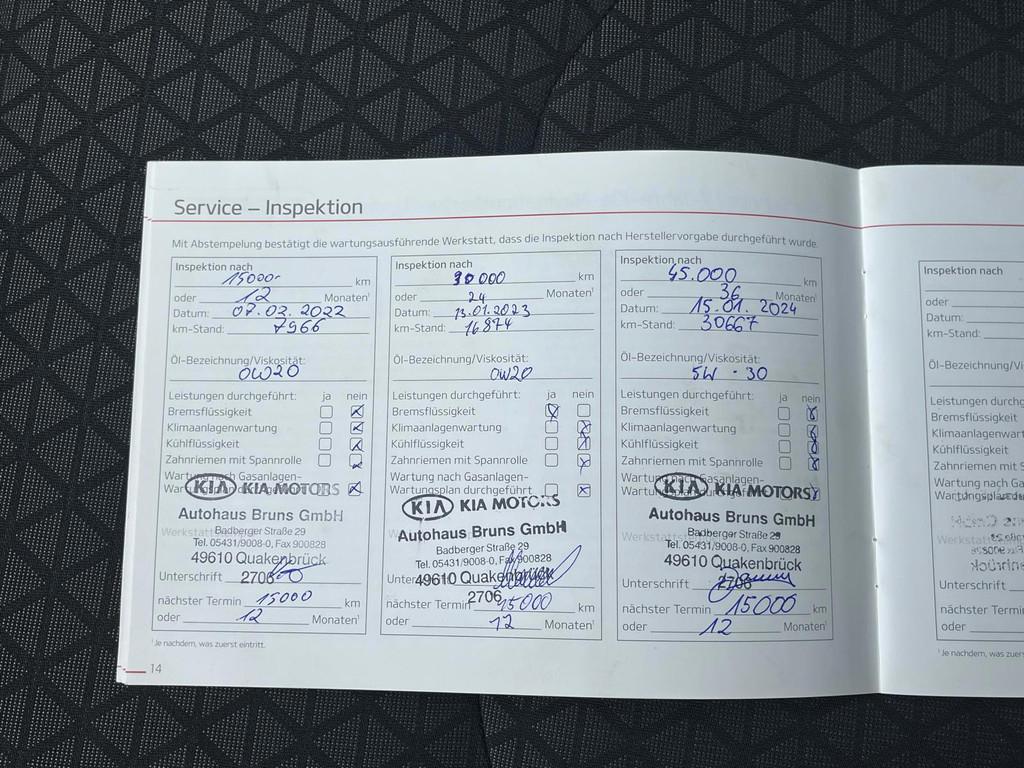 Service – Inspektion
Mit Abstempelung bestätigt die wartungsausführende Werkstatt, dass die Inspektion nach Herstellervorgabe durchgeführt wurde.
Inspektion nach
15000- km
oder 12 Monaten¹
Datum: 07.02.2022
km-Stand: 7966
Öl-Bezeichnung/Viskosität:
0W20
Leistungen durchgeführt: ja nein
Bremsflüssigkeit
Klimaanlagenwartung
Kühlflüssigkeit
Zahnriemen mit Spannrolle
Wartung nach Gasanlagen-
KIA KIA MOTORS
Autohaus Bruns GmbH
Badberger Straße 29
Tel. 05431/9008-0, Fax 900828
49610 Quakenbrück
Unterschrift 2706
nächster Termin 15000 km
oder 12 Monaten¹
¹ Je nachdem, was zuerst eintritt.
14
Inspektion nach
30000 km
oder 24 Monaten¹
Datum: 13.01.2023
km-Stand: 16874
Öl-Bezeichnung/Viskosität:
0W20
Leistungen durchgeführt: ja nein
Bremsflüssigkeit
Klimaanlagenwartung
Kühlflüssigkeit
Zahnriemen mit Spannrolle
Wartung nach Gasanlagen-
Wartungsplan durchgeführt
KIA KIA MOTORS
Autohaus Bruns GmbH
Badberger Straße 29
Tel. 05431/9008-0, Fax 900828
49610 Quakenbrück
2706
nächster Termin 15000 km
oder 12 Monaten¹
Inspektion nach
45.000 km
oder 36 Monaten¹
Datum: 15.01.2024
km-Stand: 30667
Öl-Bezeichnung/Viskosität:
5W - 30
Leistungen durchgeführt: ja nein
Bremsflüssigkeit
Klimaanlagenwartung
Kühlflüssigkeit
Zahnriemen mit Spannrolle
KIA KIA MOTORS
Autohaus Bruns GmbH
Badberger Straße 29
Tel. 05431/9008-0, Fax 900828
49610 Quakenbrück
Unterschrift 2706
nächster Termin 15000 km
oder 12 Monaten¹
Inspektion nach
oder
Datum:
km-Stand:
Öl-Bezeichnung/Vi
Leistungen durchg
Bremsflüssigkeit
Klimaanlagenwart
Kühlflüssigkeit
Zahnriemen mit S
Wartung nach Ga
Unterschrift
nächster Termin
oder
¹ Je nachdem, was zuers